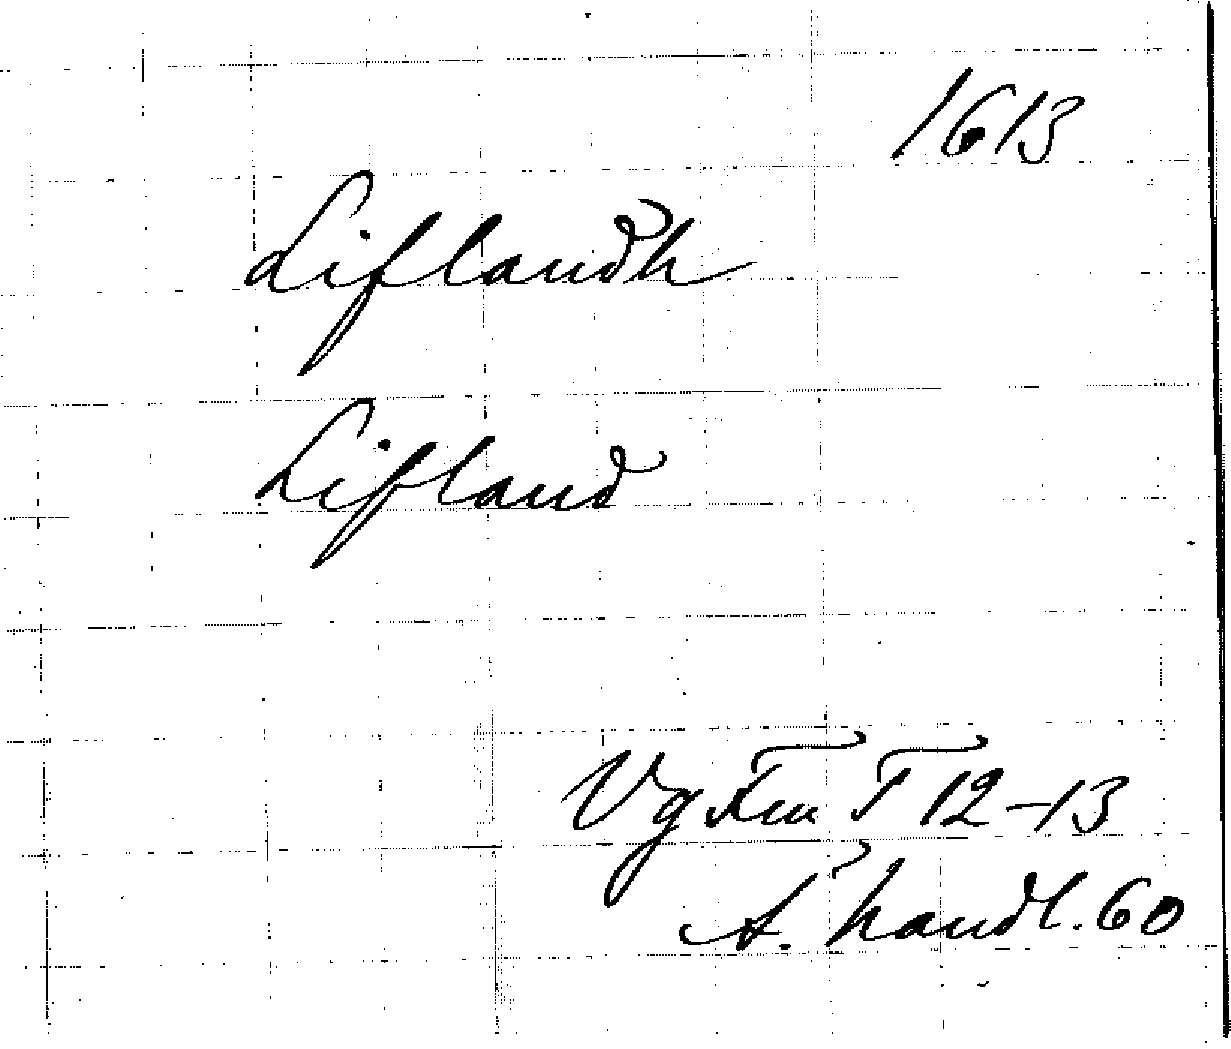 1613
Liflandh
Lifland
Vg Fm T 12-13
s. handl. 60